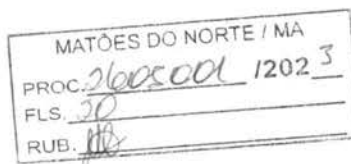 MATÕES DO NORTE / MA
PROC. 2605001 /2023
FLS. 20
RUB.